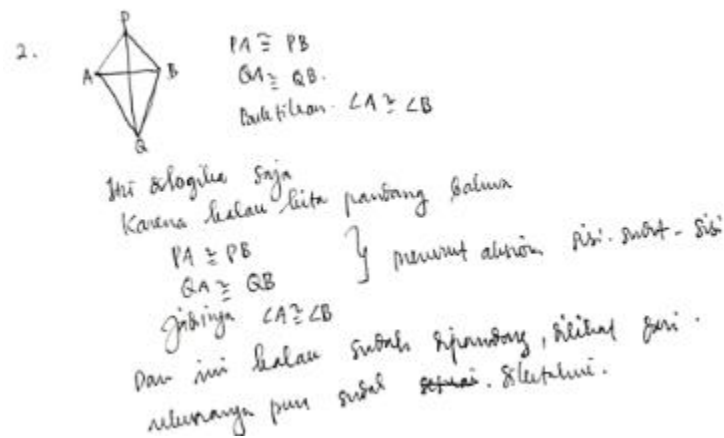 2.
P
A B
Q
PA ≅ PB
QA ≅ QB.
Buktikan. ∠A ≅ ∠B
Ini dilogika saja
Karena kalau kita pandang bahwa
PA ≅ PB
QA ≅ QB } menurut aksioma sisi-sudut-sisi
Jadinya ∠A ≅ ∠B
Dan ini kalau sudah dipandang, dilihat dari.
pun sudah diketahui.